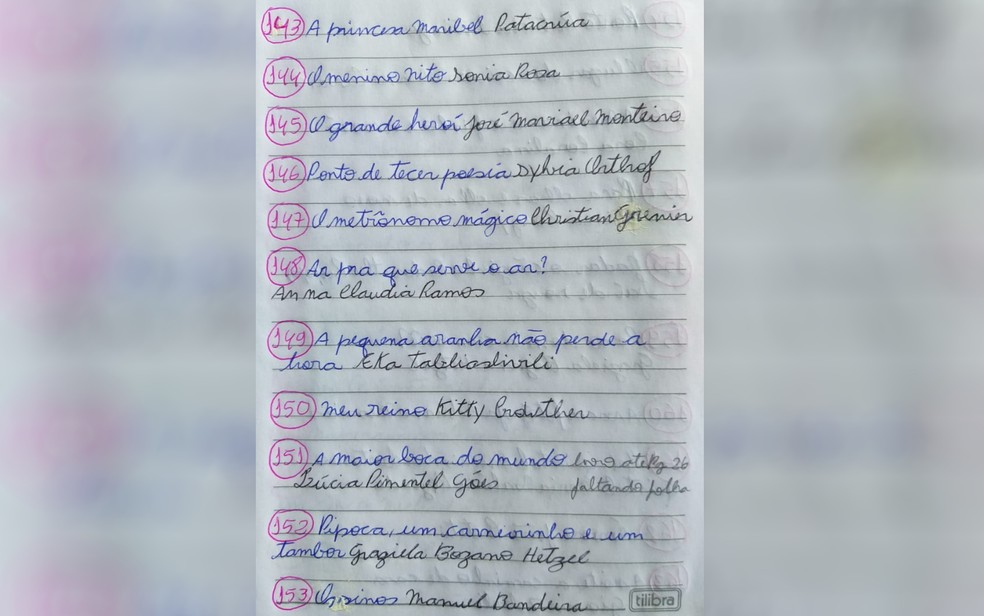 143 A princesa Maribel Patacrúa
144 O menino Nito Sonia Rosa
145 O grande heroí José Maviael Monteiro
146 Ponto de tecer poesia Sylvia Orthof
147 O metrônomo mágico Christian Grenier
148 Ar pra que serve o ar?
Anna Claudia Ramos
149 A pequena aranha não perde a
hora Eka
150 Meu reino Kitty Crowther
151 A maior boca do mundo livro até Pg 26
Lúcia Pimentel Góes faltando folha
152 Pipoca, um carneirinho e um
tambor Graziela Bozano Hetzel
153 Os sinos Manuel Bandeira
tilibra